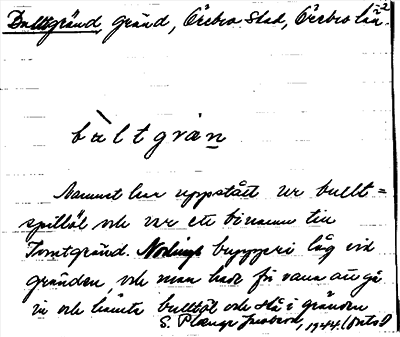 Bulltgränd, gränd, Örebro Stad, Örebro län. 2
bùltgrän
Namnet har uppstått ur bullt=
spillöl och var ett binamn till
Tomtgränd. bryggeri låg vid
gränden, och man hade för vana att gå
in och hämta bulltöl och stå i gränden
S. 1944.